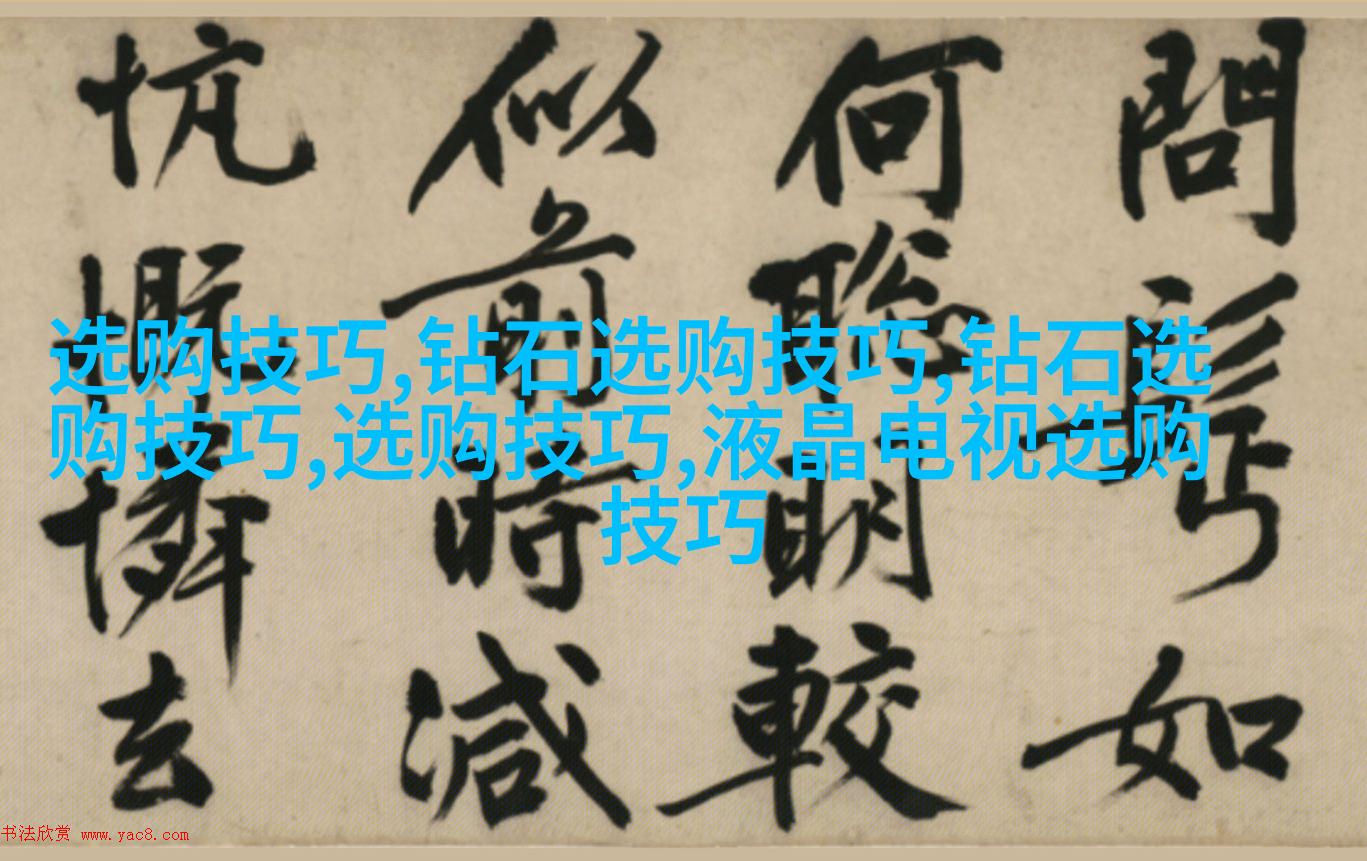 选购技巧,钻石选购技巧,钻石选
购技巧,选购技巧,液晶电视选购
技巧
問如
何聰明較
似前時減
忼慨憐去
书法欣赏 www.yac8.com